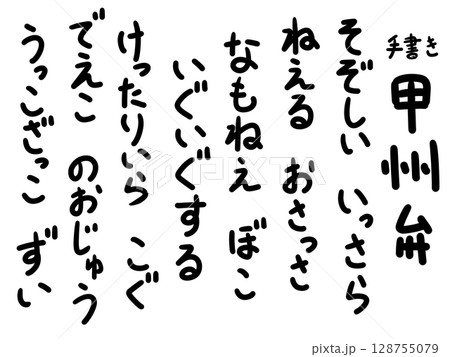 手書き
甲州弁
そぞしい いっさら
ねえる おさっさ
なもねえ ぼこ
いぐいぐする
けったりいら こぐ
でえこ のおじゅう
うっこざっこ ずい
pixta
128755079